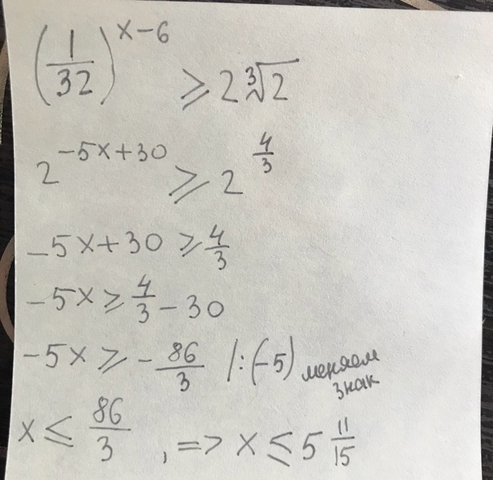 (1/32)^(x-6) ⩾ 2∛2
2^(-5x+30) ⩾ 2^(4/3)
-5x+30 ⩾ 4/3
-5x ⩾ 4/3 - 30
-5x ⩾ - 86/3 /:(-5) меняем знак
x ≤ 86/3 , => x ≤ 5 11/15